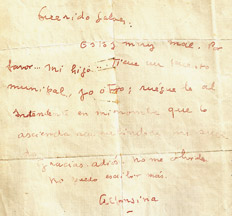 Querido Galvez:
Estoy muy mal. Por
favor... mi hijo... tiene un puesto
municipal, yo otro; ruégue le al
Intendente en mi nombre que lo
ascienda
gracias adiós no me olvide
no puedo escribir más.
Alfonsina